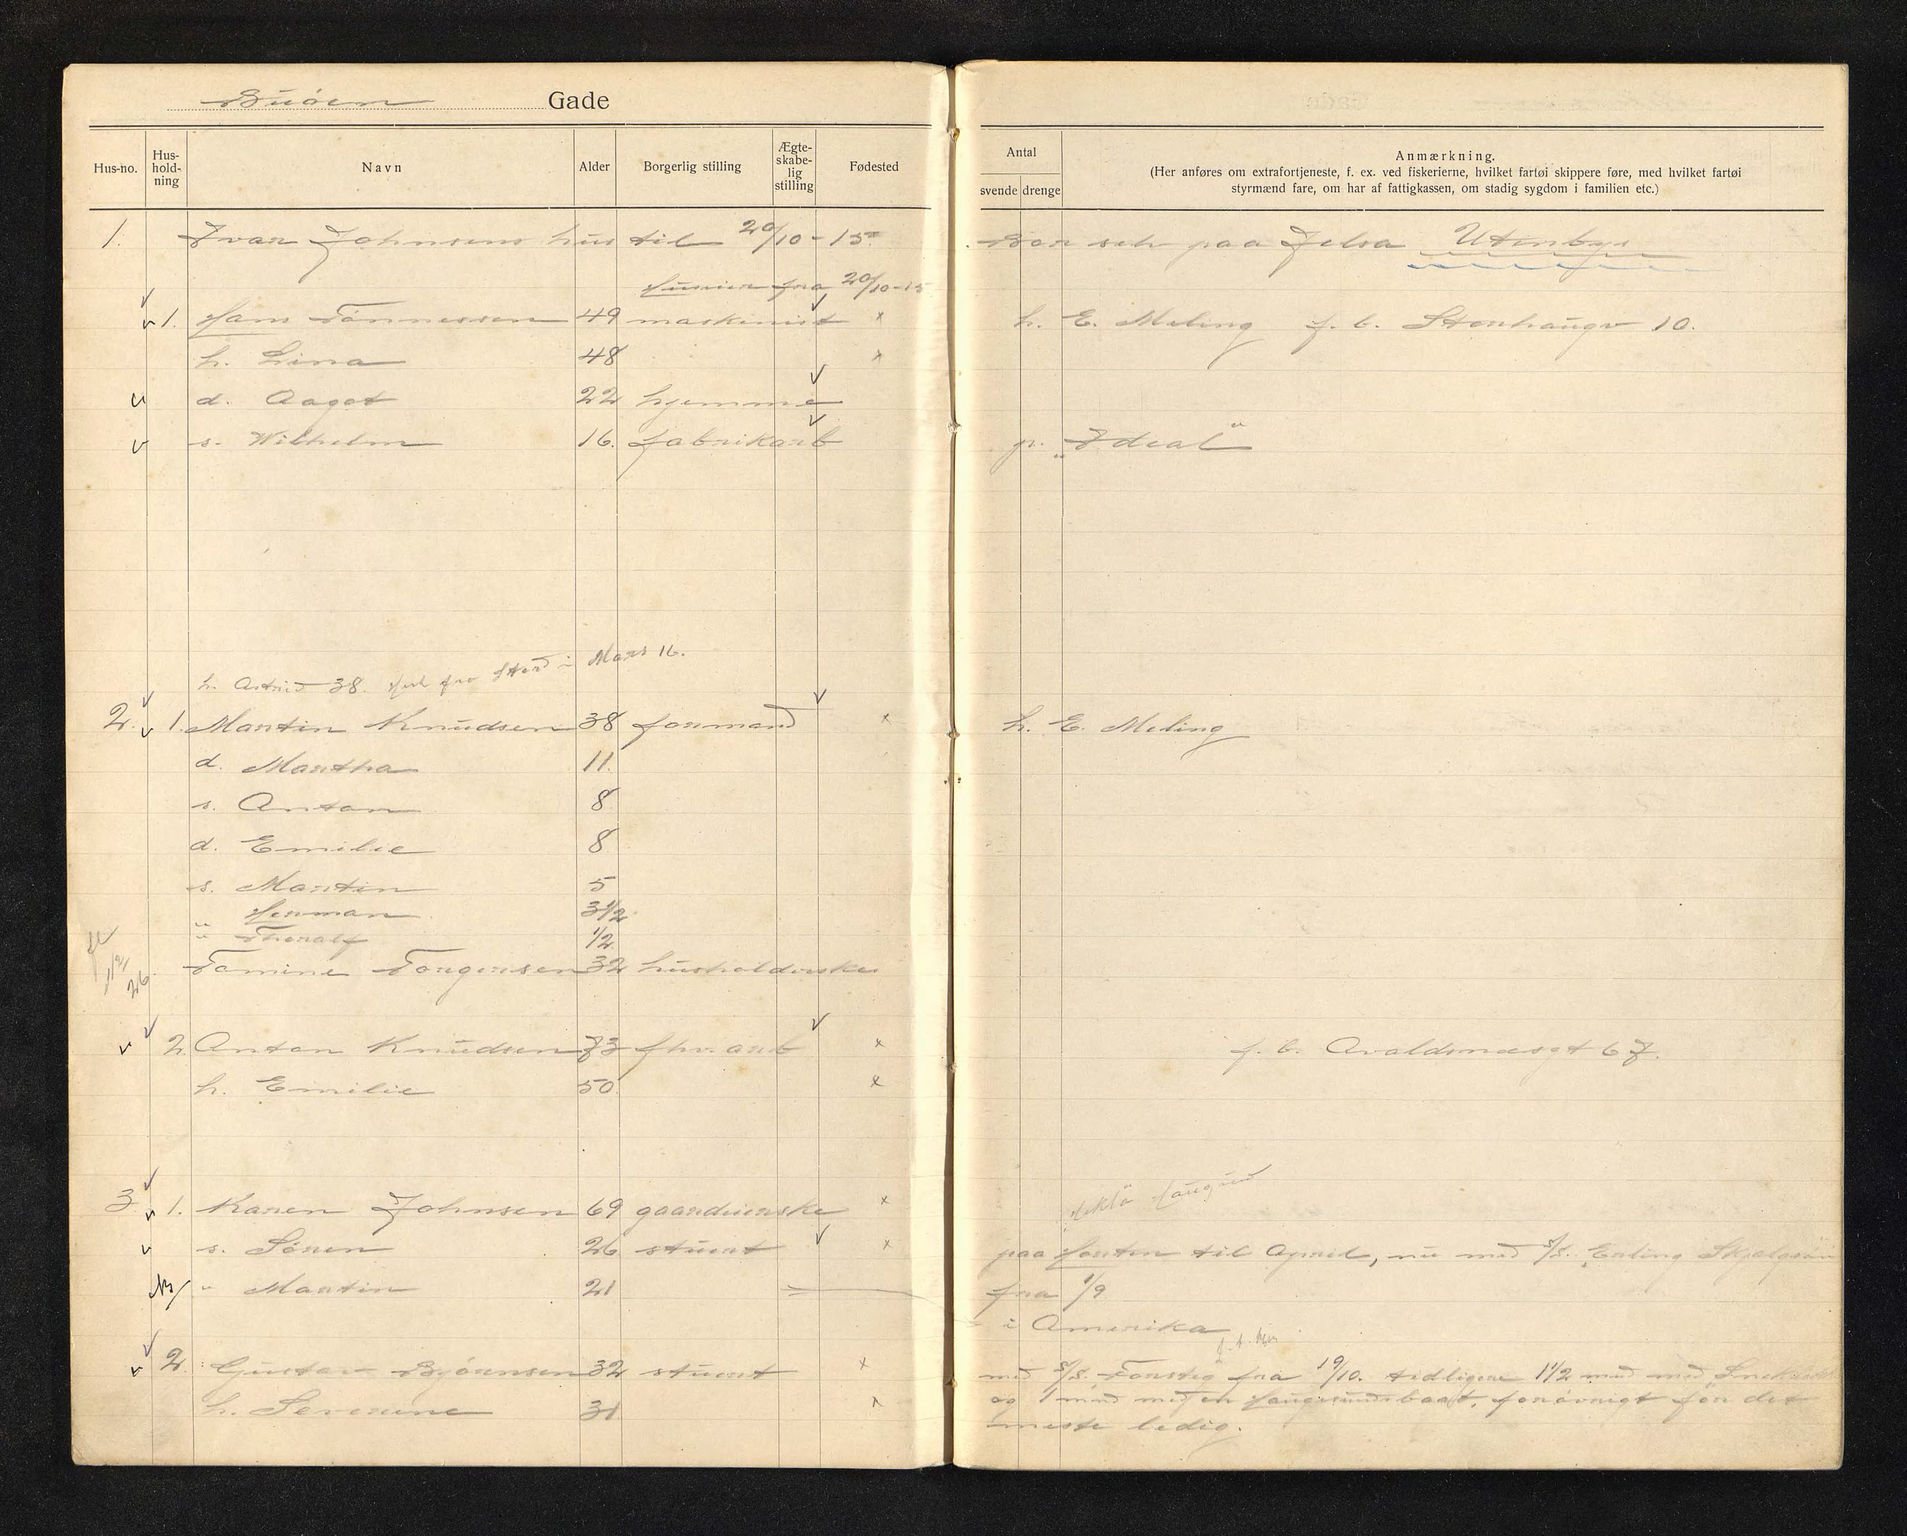 Buøen Gade
Hus-no. Hus-hold-ning Navn Alder Borgerlig stilling Ægte-skabe-lig stilling Fødested
Antal svende drenge
Anmærkning.
(Her anføres om extrafortjeneste, f. ex. ved fiskerierne, hvilket fartøi skippere føre, med hvilket fartøi
styrmænd fare, om har af fattigkassen, om stadig sygdom i familien etc.)
1. Ivar Johnsens hus til 20/10 - 15 Bor selv paa Jelsa Utenbys
Huseier fra 20/10-15
1. Hans Tønnessen 49 maskinist x h. E. Meling f. b. Stenhaugv 10.
h. Lina 48 x
d. Aagot 22 hjemme
s. Wilhelm 16. fabrikarb pr. „Ideal"
h. Astrid 38. Hit fra Stord i Mars 16.
2. 1. Martin Knudsen 38 formand x h. E. Meling
d. Martha 11.
s. Anton 8
d. Emilie 8
s. Martin 5
" Herman 3 1/2
" Thoralf 1/2
Tomine Torgersen 32 husholderske
fl 1/2 26
2. Anton Knudsen 73 fhv. arb x f. b. Avaldsnesgt 67.
h. Emilie 50. x
3 1. Karen Johnsen 69 gaardeierske x
s. Søren 26 stuert x paa Horten til April, nu med S/S. Erling Skjalgsøn
fra 1/9
" Martin 21 i Amerika
2. Gustav Bjørnsen 32 stuert x med S/S. Forsteg fra 19/10. tidligere 1 1/2 mnd med
h. Severine 31 x og 1 mnd med en Haugesundsbaat, forøvrigt for det
meste ledig.